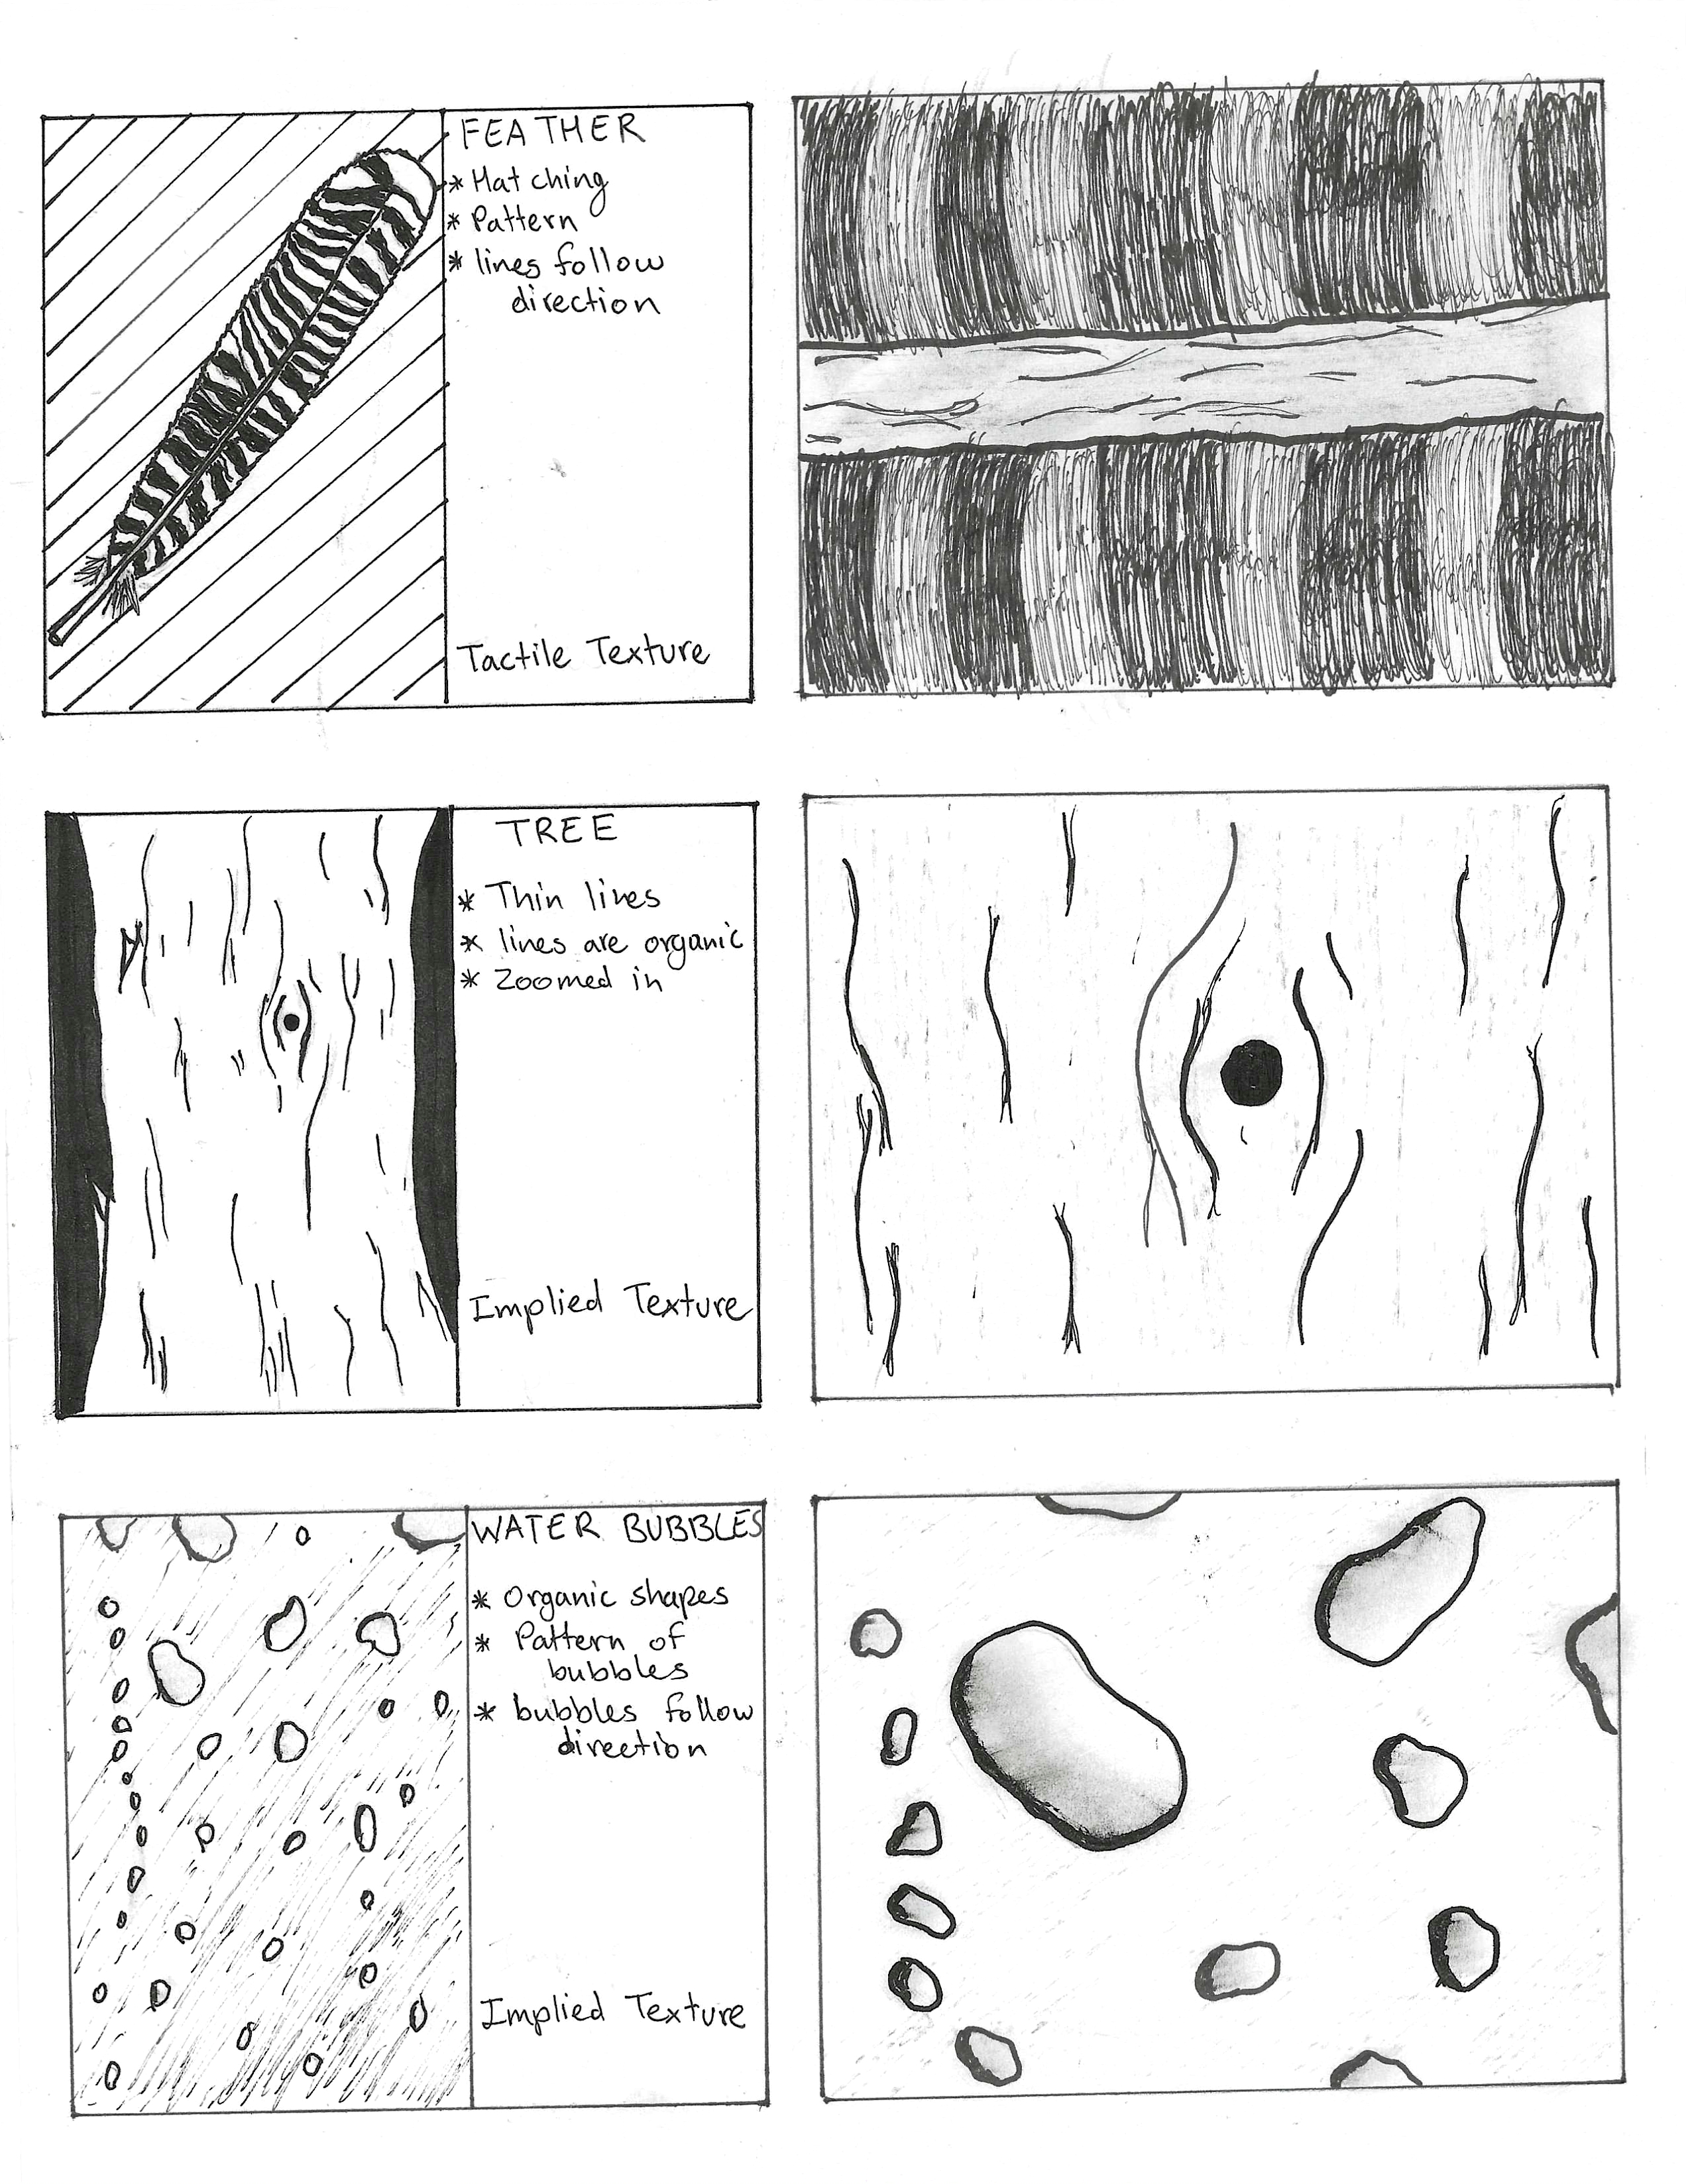 FEATHER
* Hatching
* Pattern
* lines follow
direction
Tactile Texture
TREE
* Thin lines
* lines are organic
* Zoomed in
Implied Texture
WATER BUBBLES
* Organic shapes
* Pattern of
bubbles
* bubbles follow
direction
Implied Texture